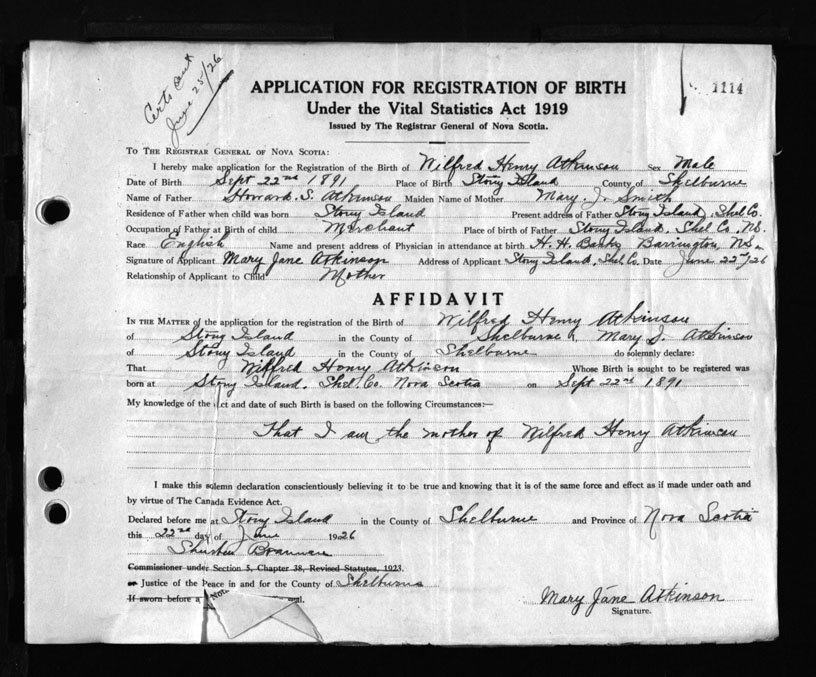 Certs sent
June 25/26
1114
APPLICATION FOR REGISTRATION OF BIRTH
Under the Vital Statistics Act 1919
Issued by The Registrar General of Nova Scotia.
TO THE REGISTRAR GENERAL OF NOVA SCOTIA:
I hereby make application for the Registration of the Birth of Wilfred Henry Atkinson Sex Male
Date of Birth Sept 22nd 1891 Place of Birth Stony Island County of Shelburne
Name of Father Howard S. Atkinson Maiden Name of Mother Mary. J. Smith
Residence of Father when child was born Stony Island Present address of Father Stony Island, Shel Co.
Occupation of Father at Birth of child Merchant Place of birth of Father Stony Island, Shel Co, N.S.
Race English Name and present address of Physician in attendance at birth H. H. Banks Barrington, N.S.
Signature of Applicant Mary Jane Atkinson Address of Applicant Stony Island, Shel Co. Date June 22nd/26
Relationship of Applicant to Child Mother
AFFIDAVIT
IN THE MATTER of the application for the registration of the Birth of Wilfred Henry Atkinson
of Stony Island in the County of Shelburne I, Mary J. Atkinson
of Stony Island in the County of Shelburne do solemnly declare:
That Wilfred Henry Atkinson Whose Birth is sought to be registered was
born at Stony Island, Shel Co. Nova Scotia on Sept 22nd 1891
My knowledge of the fact and date of such Birth is based on the following Circumstances:—
That I am the mother of Wilfred Henry Atkinson
I make this solemn declaration conscientiously believing it to be true and knowing that it is of the same force and effect as if made under oath and
by virtue of The Canada Evidence Act.
Declared before me at Stony Island in the County of Shelburne and Province of Nova Scotia
this 22nd day of June 1926
Commissioner under Section 5, Chapter 38, Revised Statutes, 1923.
or Justice of the Peace in and for the County of Shelburne
If sworn before a
Mary Jane Atkinson
Signature.